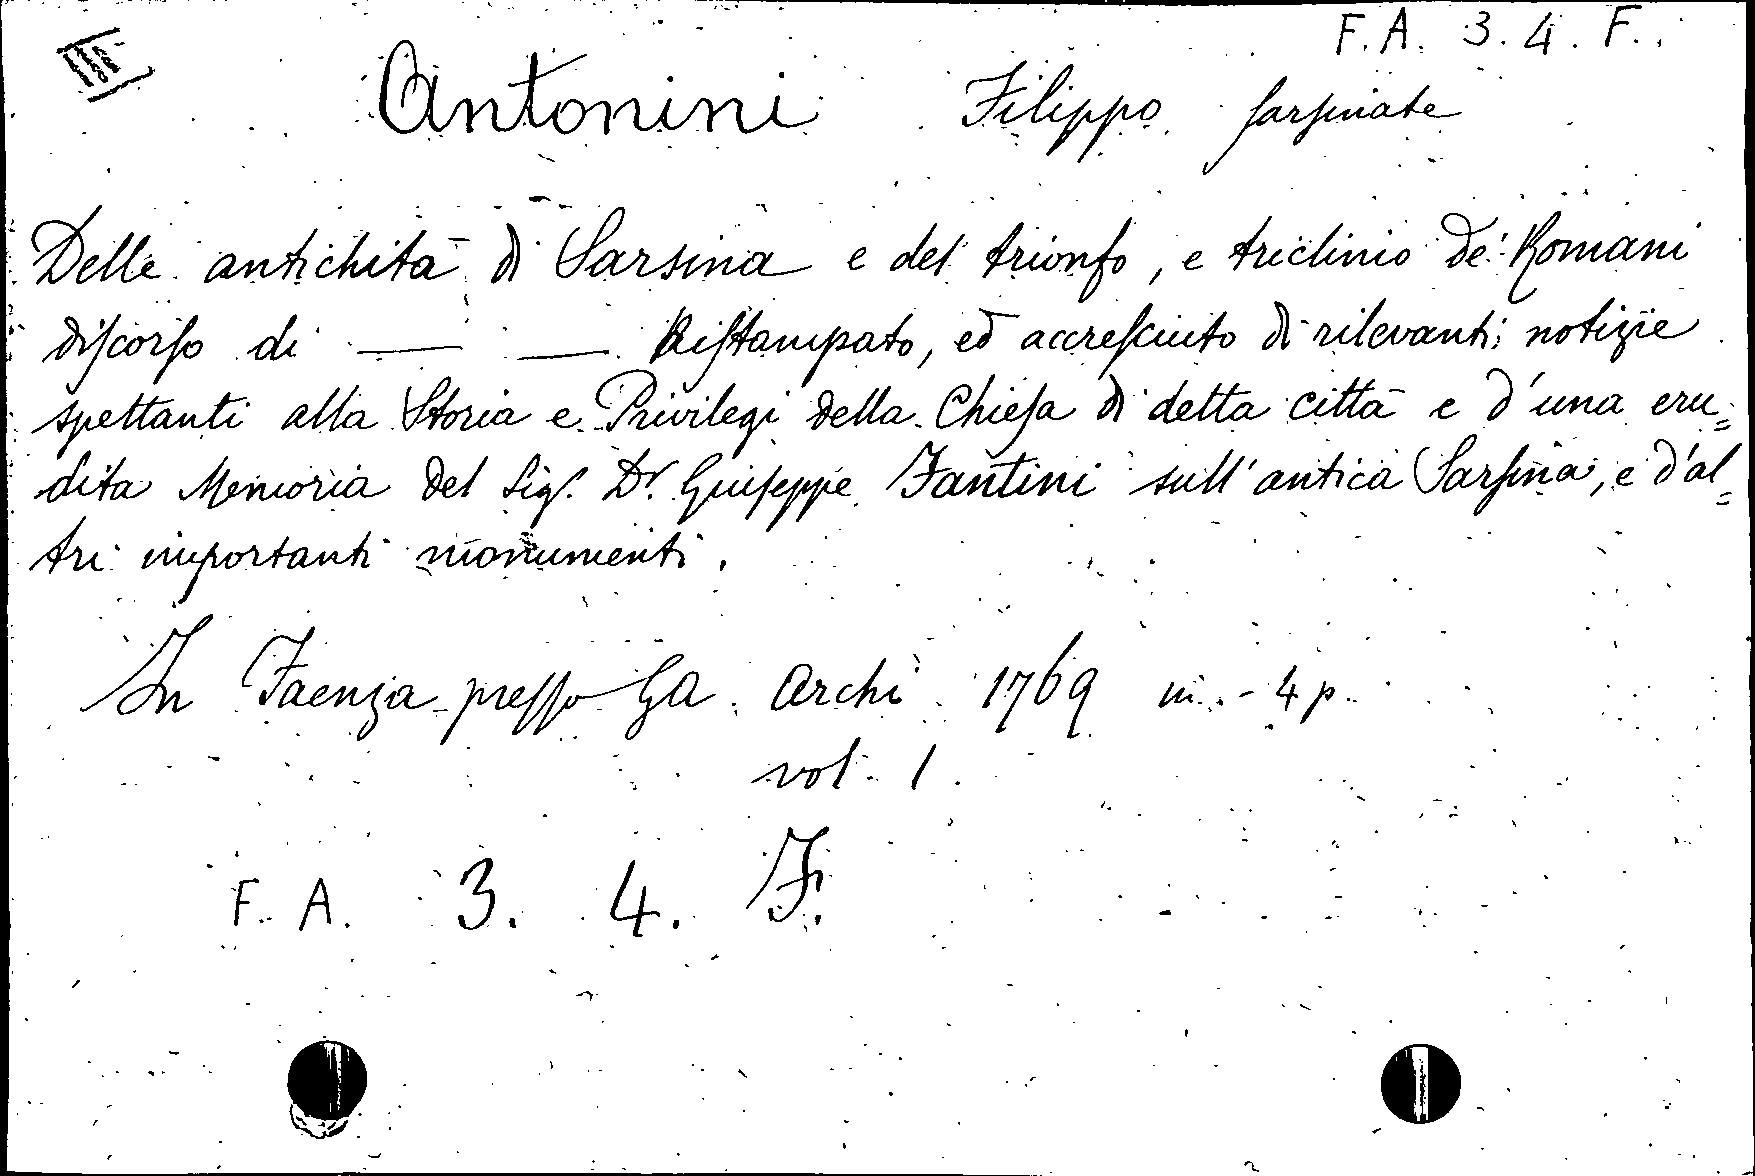 F. A. 3. 4. F.
Antonini Filippo sarsinate
Delle antichità di Sarsina e del trionfo, e triclinio de' Romani
discorso di — — Ristampato, ed accresciuto di rilevanti notizie
spettanti alla Storia e Privilegi della Chiesa di detta città e d'una eru=
dita Memoria del Sig. Dr. Giuseppe Fantini sull'antica Sarsina, e d'al=
tri importanti monumenti.
In Faenza presso GA Archi 1769 in - 4 p.
vol. 1.
F. A. 3. 4. F.